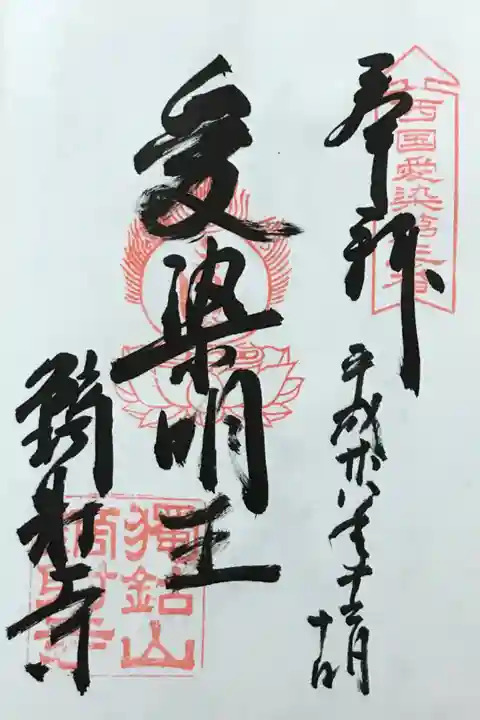 奉拝
西国愛染第
平成廿八年十二月
十日
愛染明王
鏑射寺
獨鈷山
鏑射寺